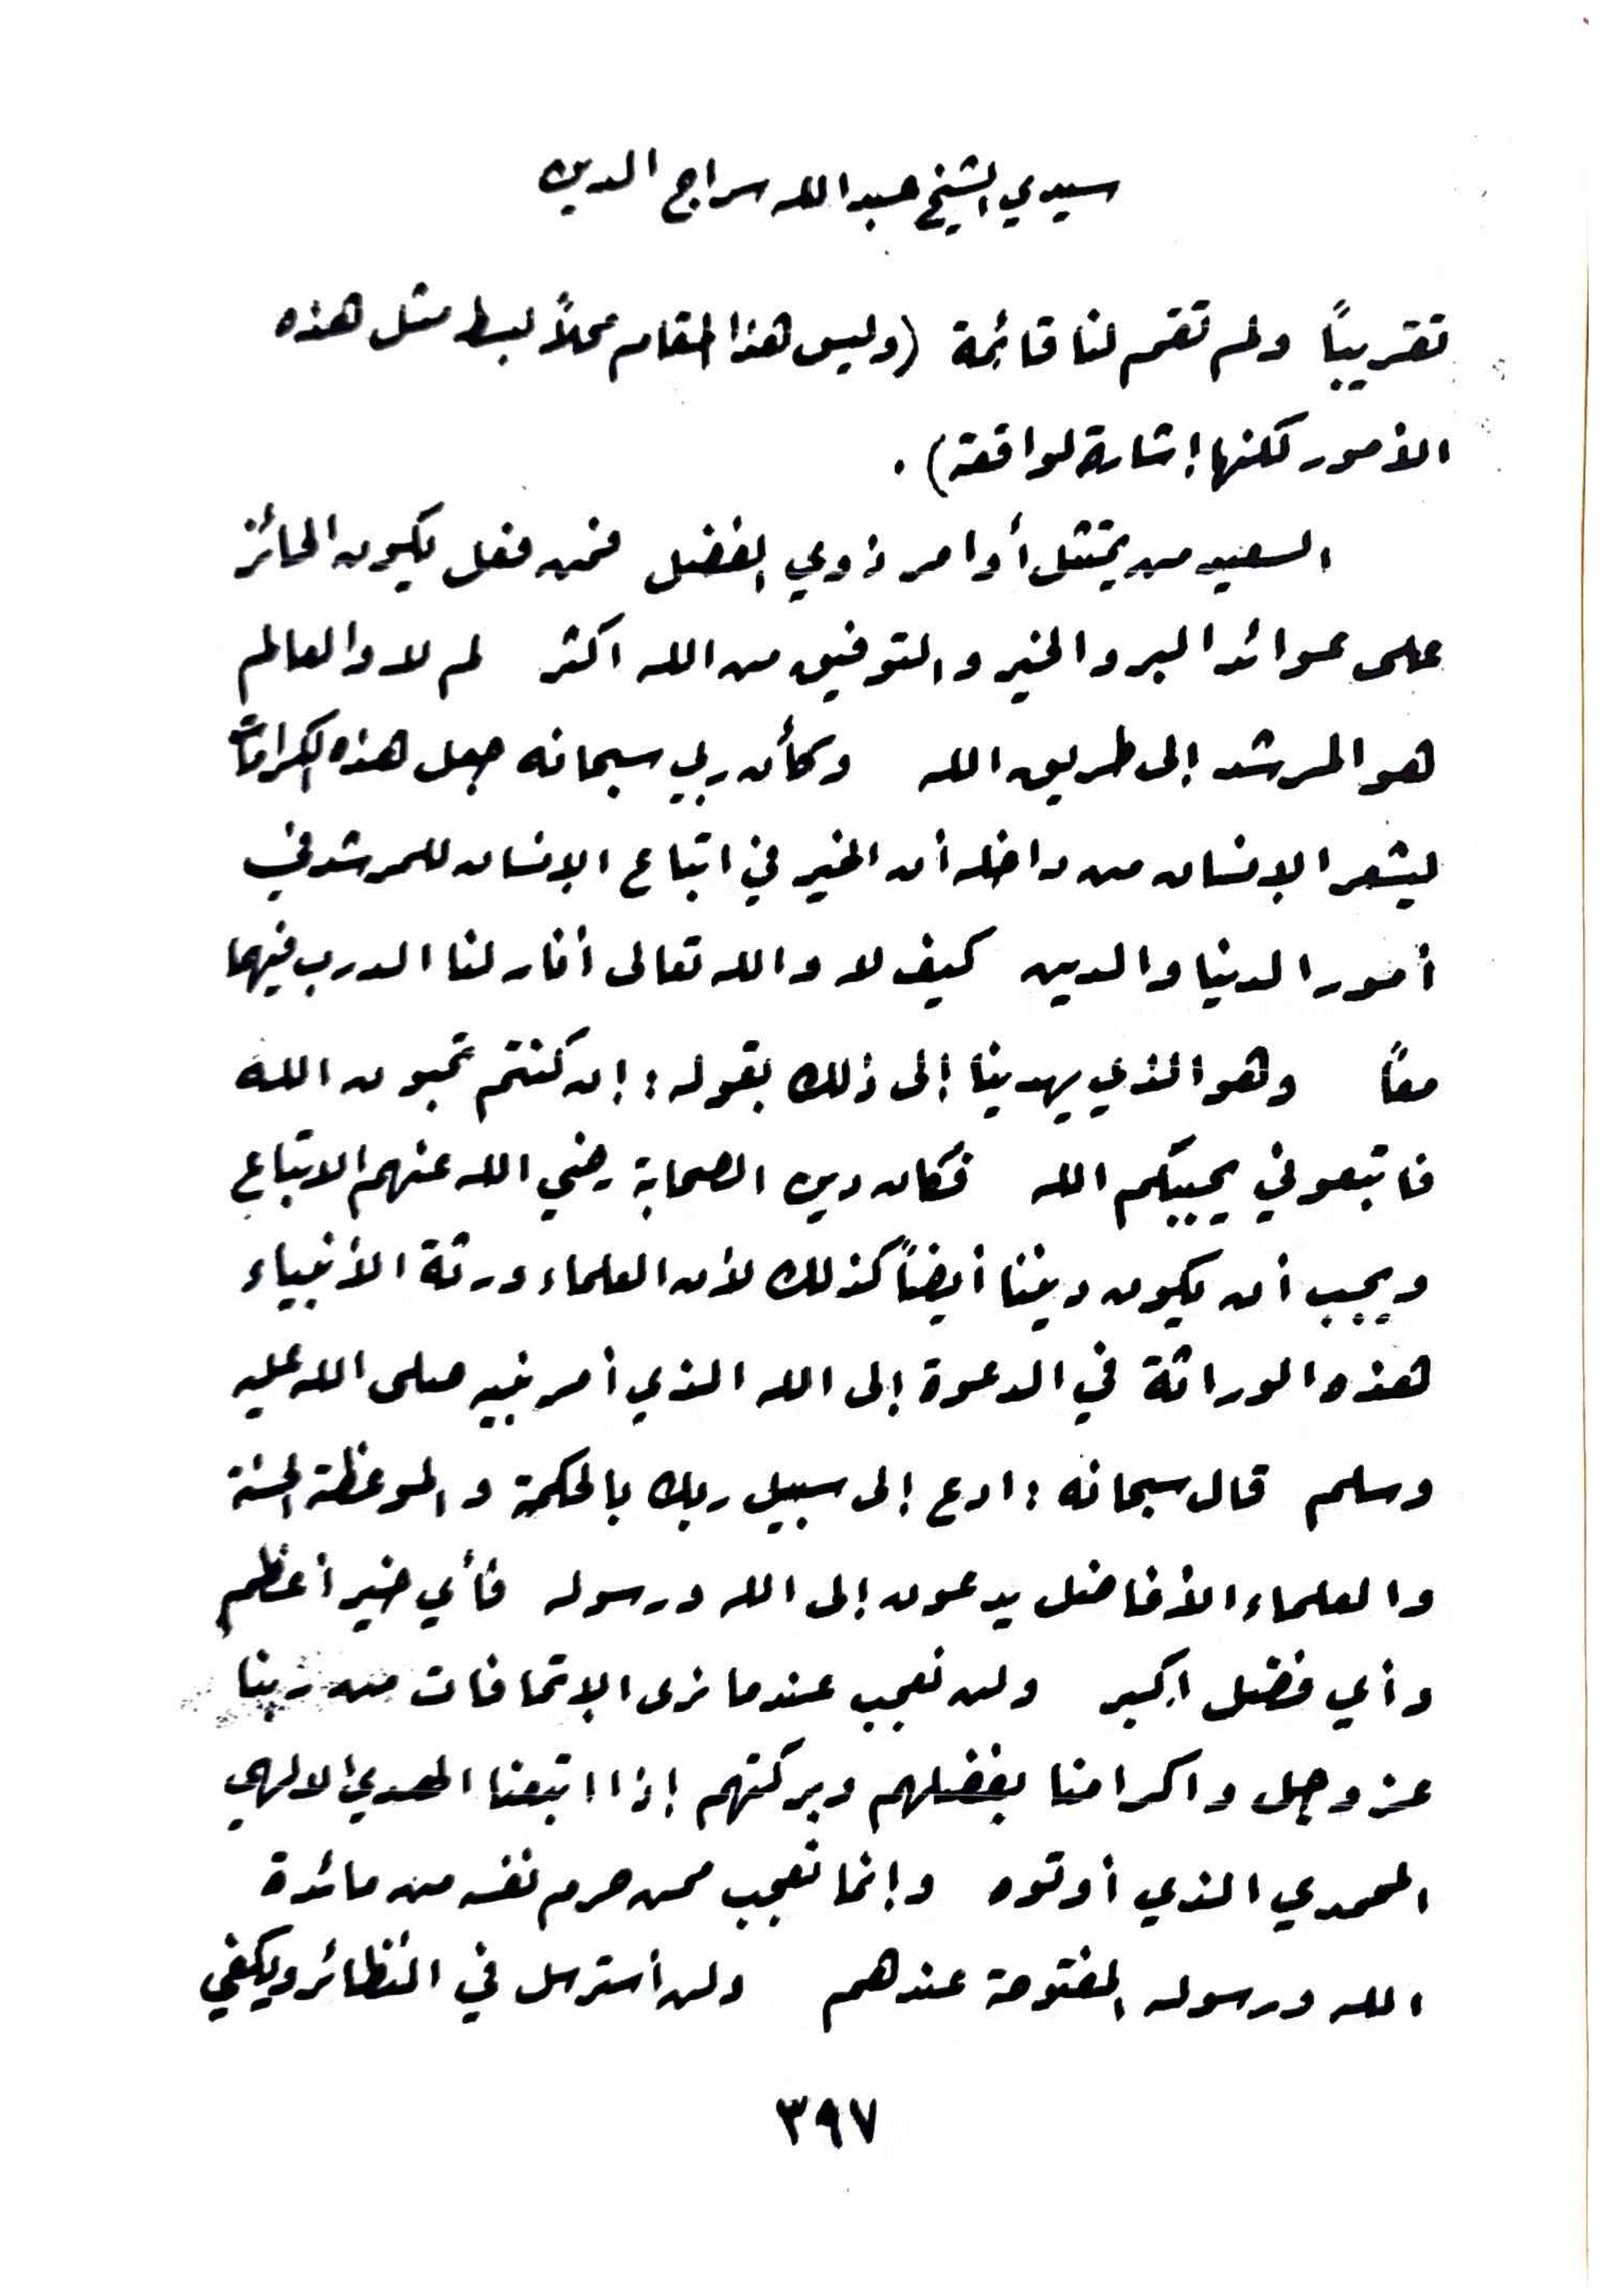 سيدي الشيخ عبد الله سراج الدين
تقريباً ولم تقم لنا قائمة (وليس هذا المقام محلاً لبسط مثل هذه
الأمور لكنها إشارة لواقعة) .
السعيد من يمتثل أوامر ذوي الفضل فمن فعل يكون الحائز
على عوائد البر والخير والتوفيق من الله اكثر لم لا والعالم
هو المرشد إلى طريق الله وكأن ربي سبحانه جعل هذه الكرامات
ليشعر الإنسان من داخله أن الخير في اتباع الإنسان للمرشد في
أمور الدنيا والدين كيف لا والله تعالى أنار لنا الدرب فيهما
معاً وهو الذي يهدينا إلى ذلك بقوله : إن كنتم تحبون الله
فاتبعوني يحببكم الله فكان دين الصحابة رضي الله عنهم الاتباع
ويجب أن يكون ديننا أيضاً كذلك لأن العلماء ورثة الأنبياء
هذه الوراثة في الدعوة إلى الله الذي أمر نبيه صلى الله عليه
وسلم قال سبحانه : ادع إلى سبيل ربك بالحكمة والموعظة الحسنة
والعلماء الأفاضل يدعون إلى الله ورسوله فأي خير أعظم
وأي فضل اكبر ولن نعجب عندما نرى الإتحافات من ربنا
عز وجل واكرامنا بفضلهم وبركتهم إذا اتبعنا الهدي الالهي
المحمدي الذي أوتوه وإنما نعجب ممن حرم نفسه من مائدة
الله ورسوله المفتوحة عندهم ولن أسترسل في النظائر ويكفي
٣٩٧